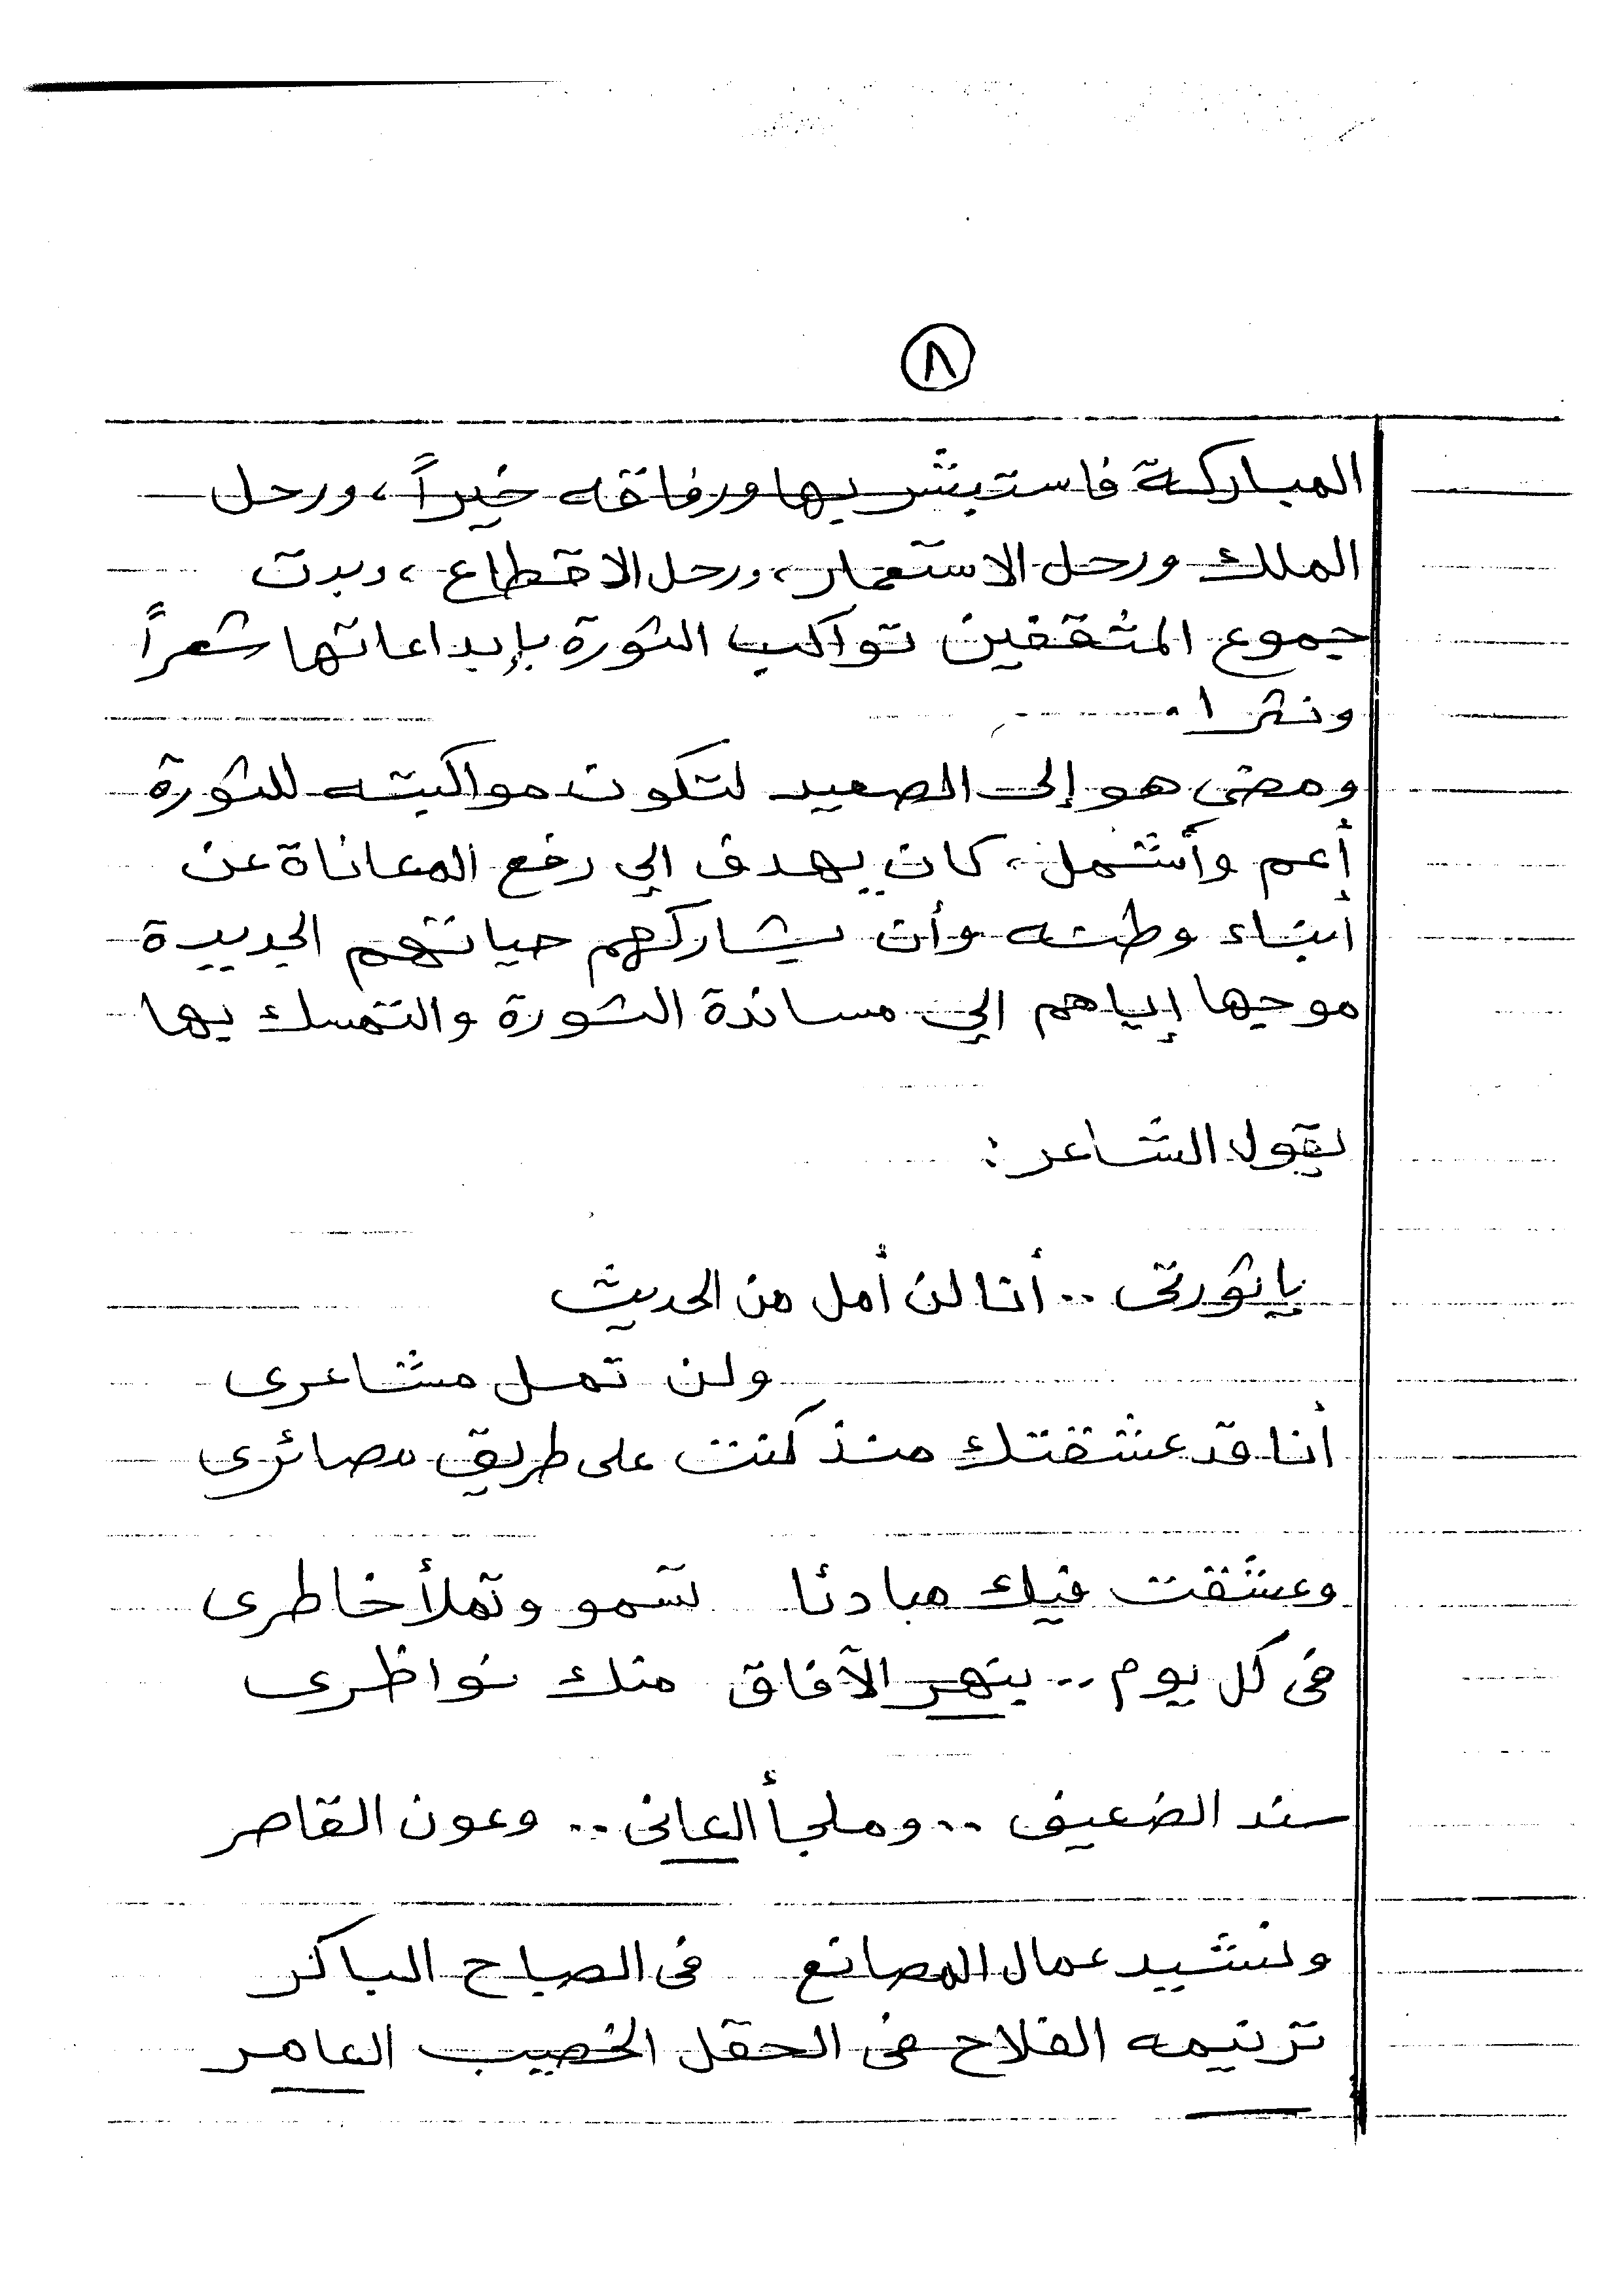 ٨
المباركة فاستبشر بها ورفاقه خيراً، ورحل
الملك ورحل الاستعمار، ورحل الاقطاع، وبدت
جموع المثقفين تواكب الثورة بإبداعاتها شعراً
ونثرا.
ومضى هو إلى الصعيد لتكون مواكبته للثورة
أعم وأشمل، كان يهدف الي رفع المعاناة عن
أبناء وطنه وأن يشاركهم حياتهم الجديدة
موجها إياهم الي مساندة الثورة والتمسك بها
يقول الشاعر:
ياثورتى .. أنا لن أمل من الحديث
ولن تمل مشاعرى
أنا قد عشقتك منذ كنت على طريق مصائرى
وعشقت فيك مبادئا تسمو وتملأ خاطرى
فى كل يوم .. ينهر الآفاق منك نواظرى
سند الضعيف .. وملجأ العانى .. وعون القاصر
ونشيد عمال المصانع فى الصباح الباكر
ترنيمه الفلاح فى الحقل الخصيب العامر